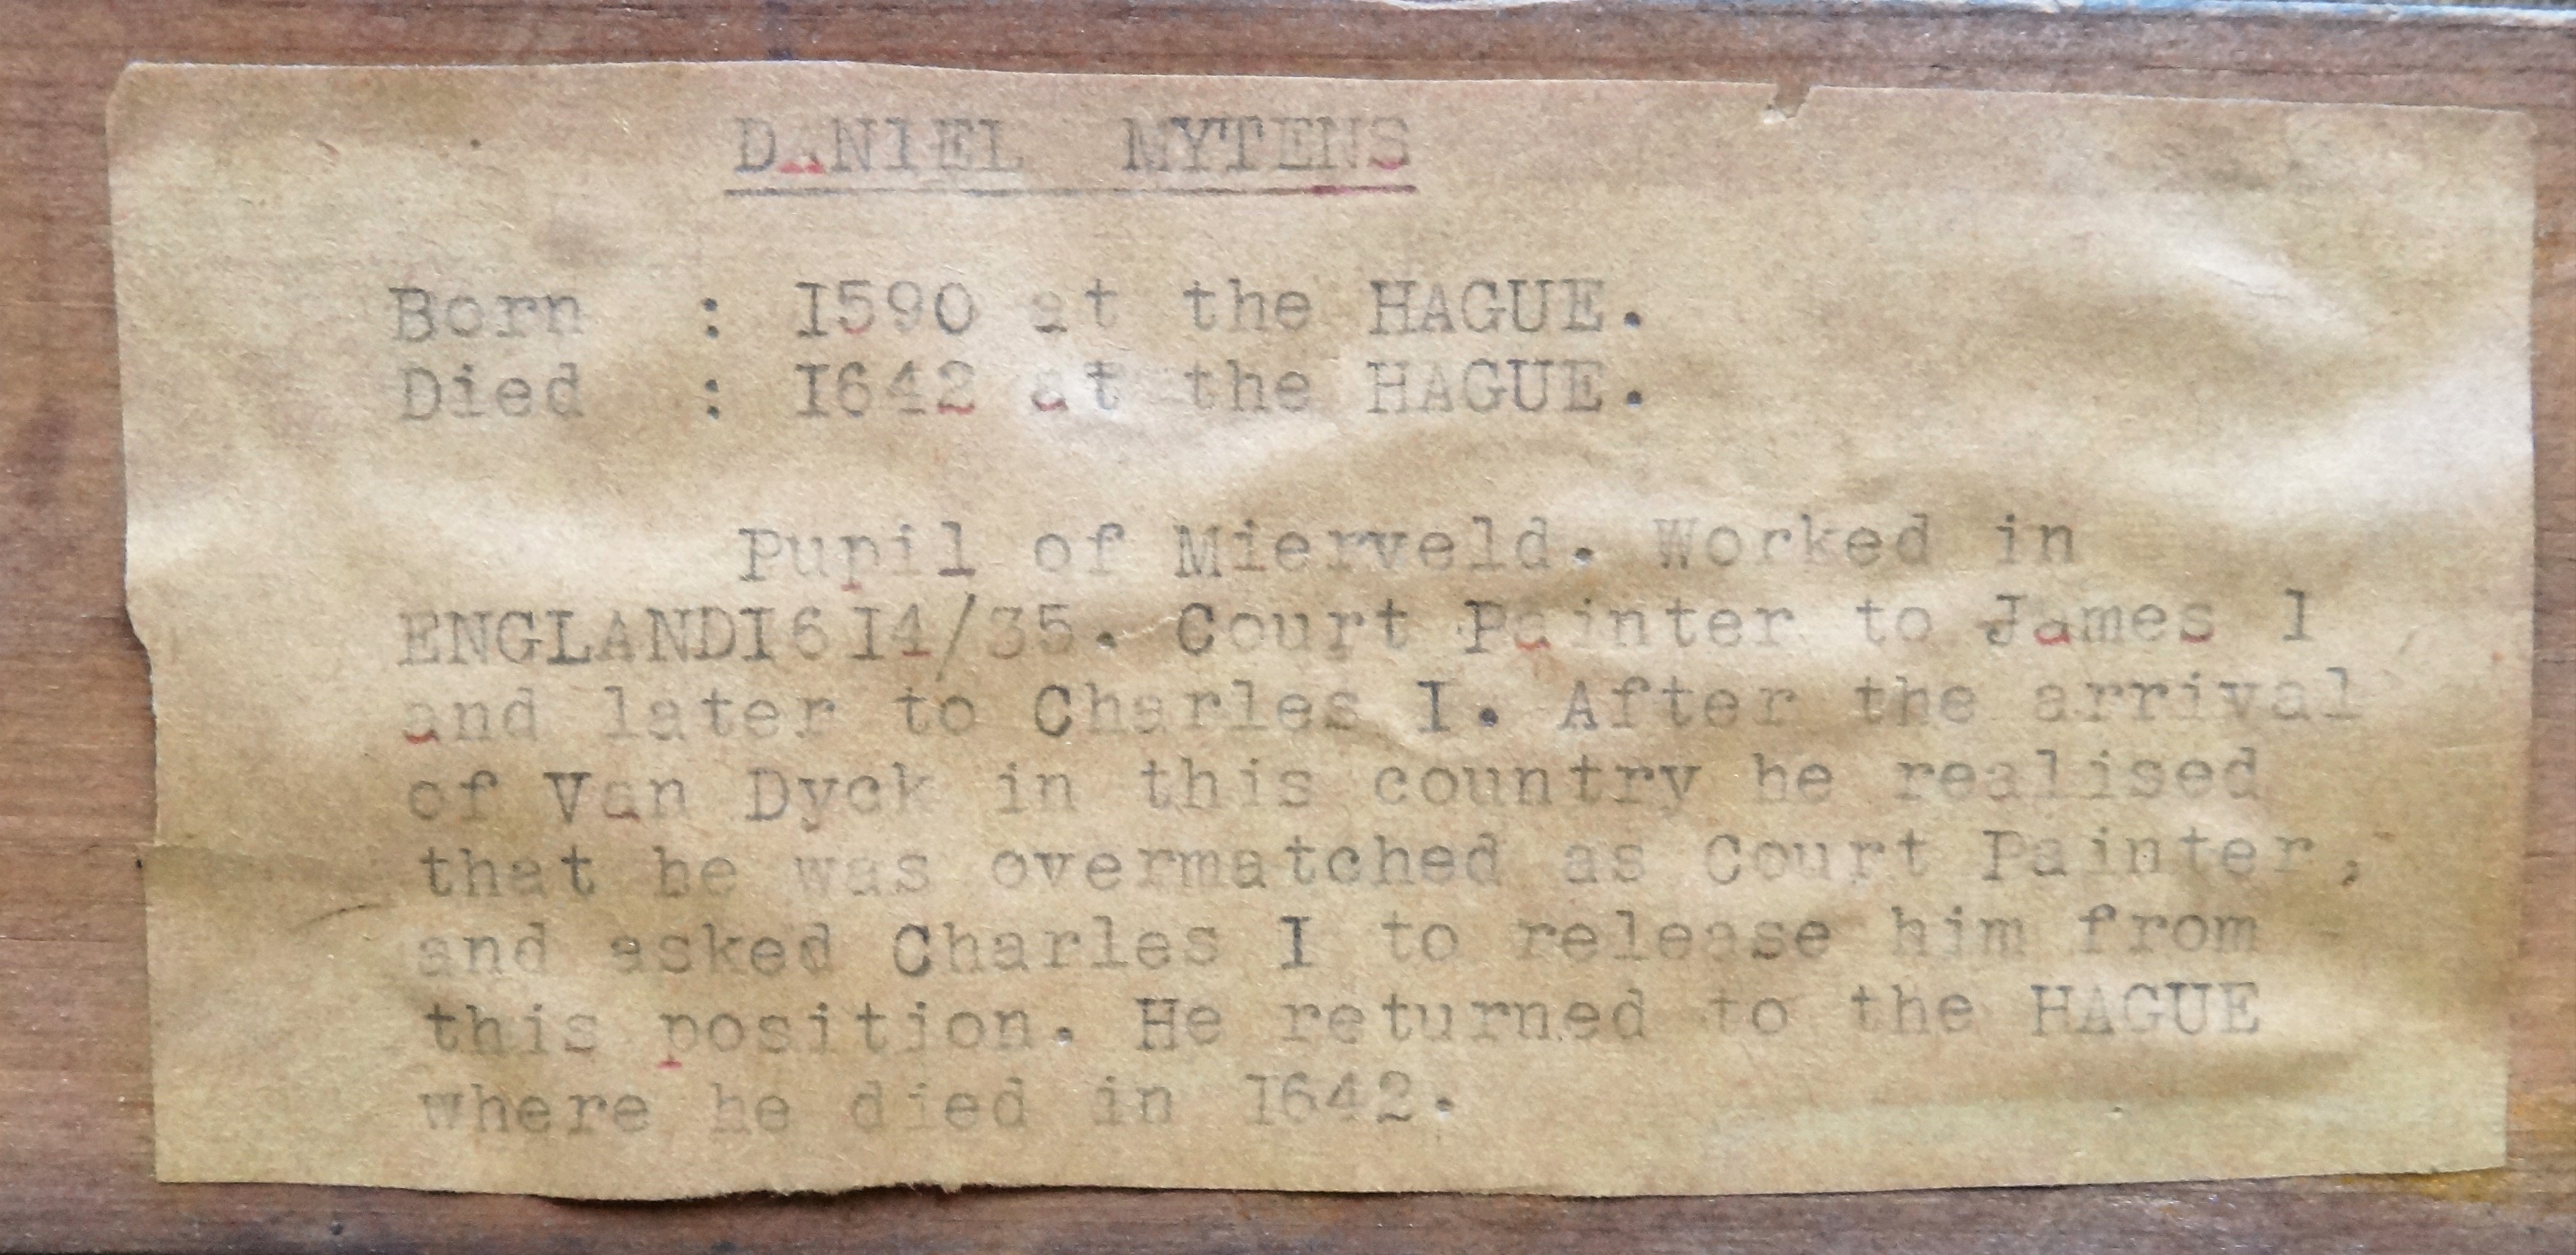 DANIEL MYTENS
Born : I590 at the HAGUE.
Died : I642 at the HAGUE.
Pupil of Mierveld. Worked in
ENGLANDI6I4/35. Court Painter to James l
and later to Charles I. After the arrival
of Van Dyck in this country he realised
that he was overmatched as Court Painter,
and asked Charles I to release him from
this position. He returned to the HAGUE
where he died in l642.